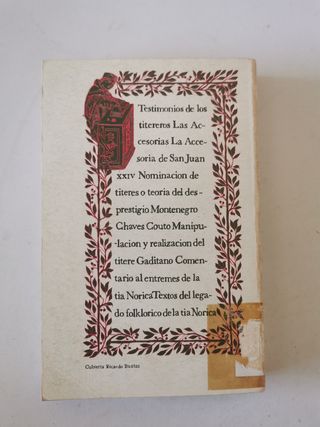 Testimonios de los
titereros Las Ac-
cesorias La Acce-
soria de San Juan
XXIV Nominacion de
titeres o teoria del des-
prestigio Montenegro
Chaves Couto Manipu-
-lacion y realizacion del
titere Gaditano Comen-
tario al entremes de la
tia Norica Textos del lega-
do folklorico de la tia Norica
Cubierta Ricardo Bustos